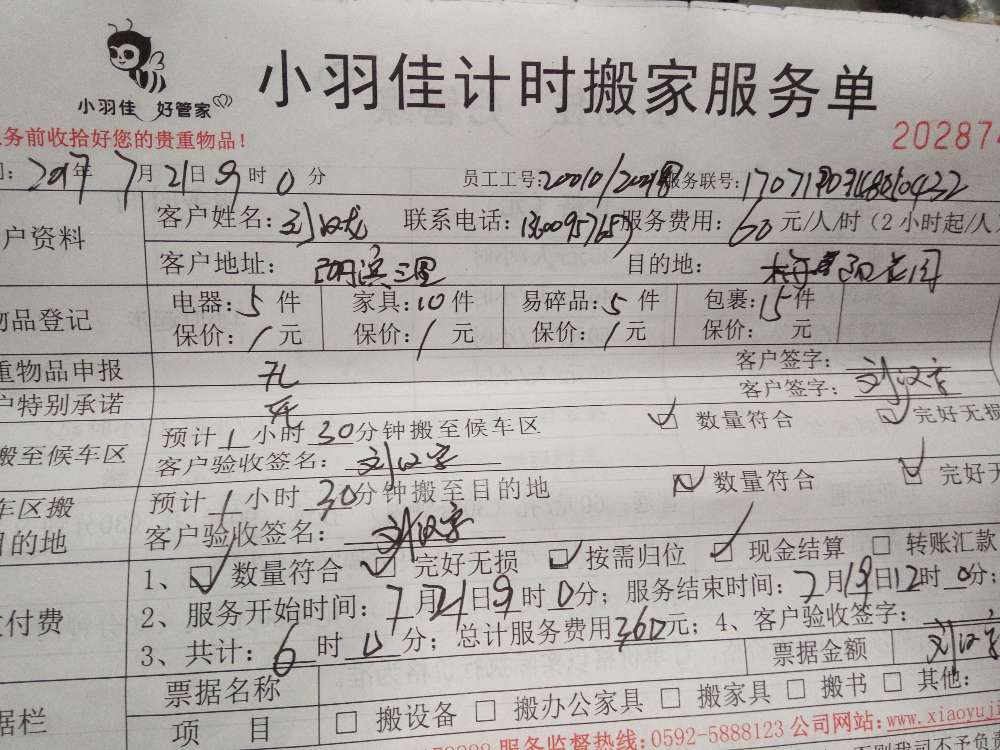 小羽佳 好管家
小羽佳计时搬家服务单
务前收拾好您的贵重物品！
202874
2017年7月21日9时0分 员工工号: 服务联号:
户资料 客户姓名: 联系电话: 服务费用: 60元/人/时（2小时起/人
客户地址: 三里 目的地:
物品登记 电器:5件 家具:10件 易碎品:5件 包裹:15件
保价:1元 保价:1元 保价:1元 保价: 元
重物品申报 无 客户签字:
户特别承诺 无 客户签字: 刘汉字
搬至候车区 预计1小时30分钟搬至候车区 数量符合 完好无损
客户验收签名: 刘汉字
车区搬 预计1小时30分钟搬至目的地 数量符合 完好无
目的地 客户验收签名: 刘汉字
1、数量符合 完好无损 按需归位 现金结算 转账汇款
付费 2、服务开始时间: 7月21日9时0分; 服务结束时间: 7月19日12时0分;
3、共计: 6时0分; 总计服务费用360元; 4、客户验收签字: 刘汉字
据栏 票据名称 票据金额
项目 搬设备 搬办公家具 搬家具 搬书 其他:
服务监督热线:0592-5888123 公司网站:www.xiaoyuji